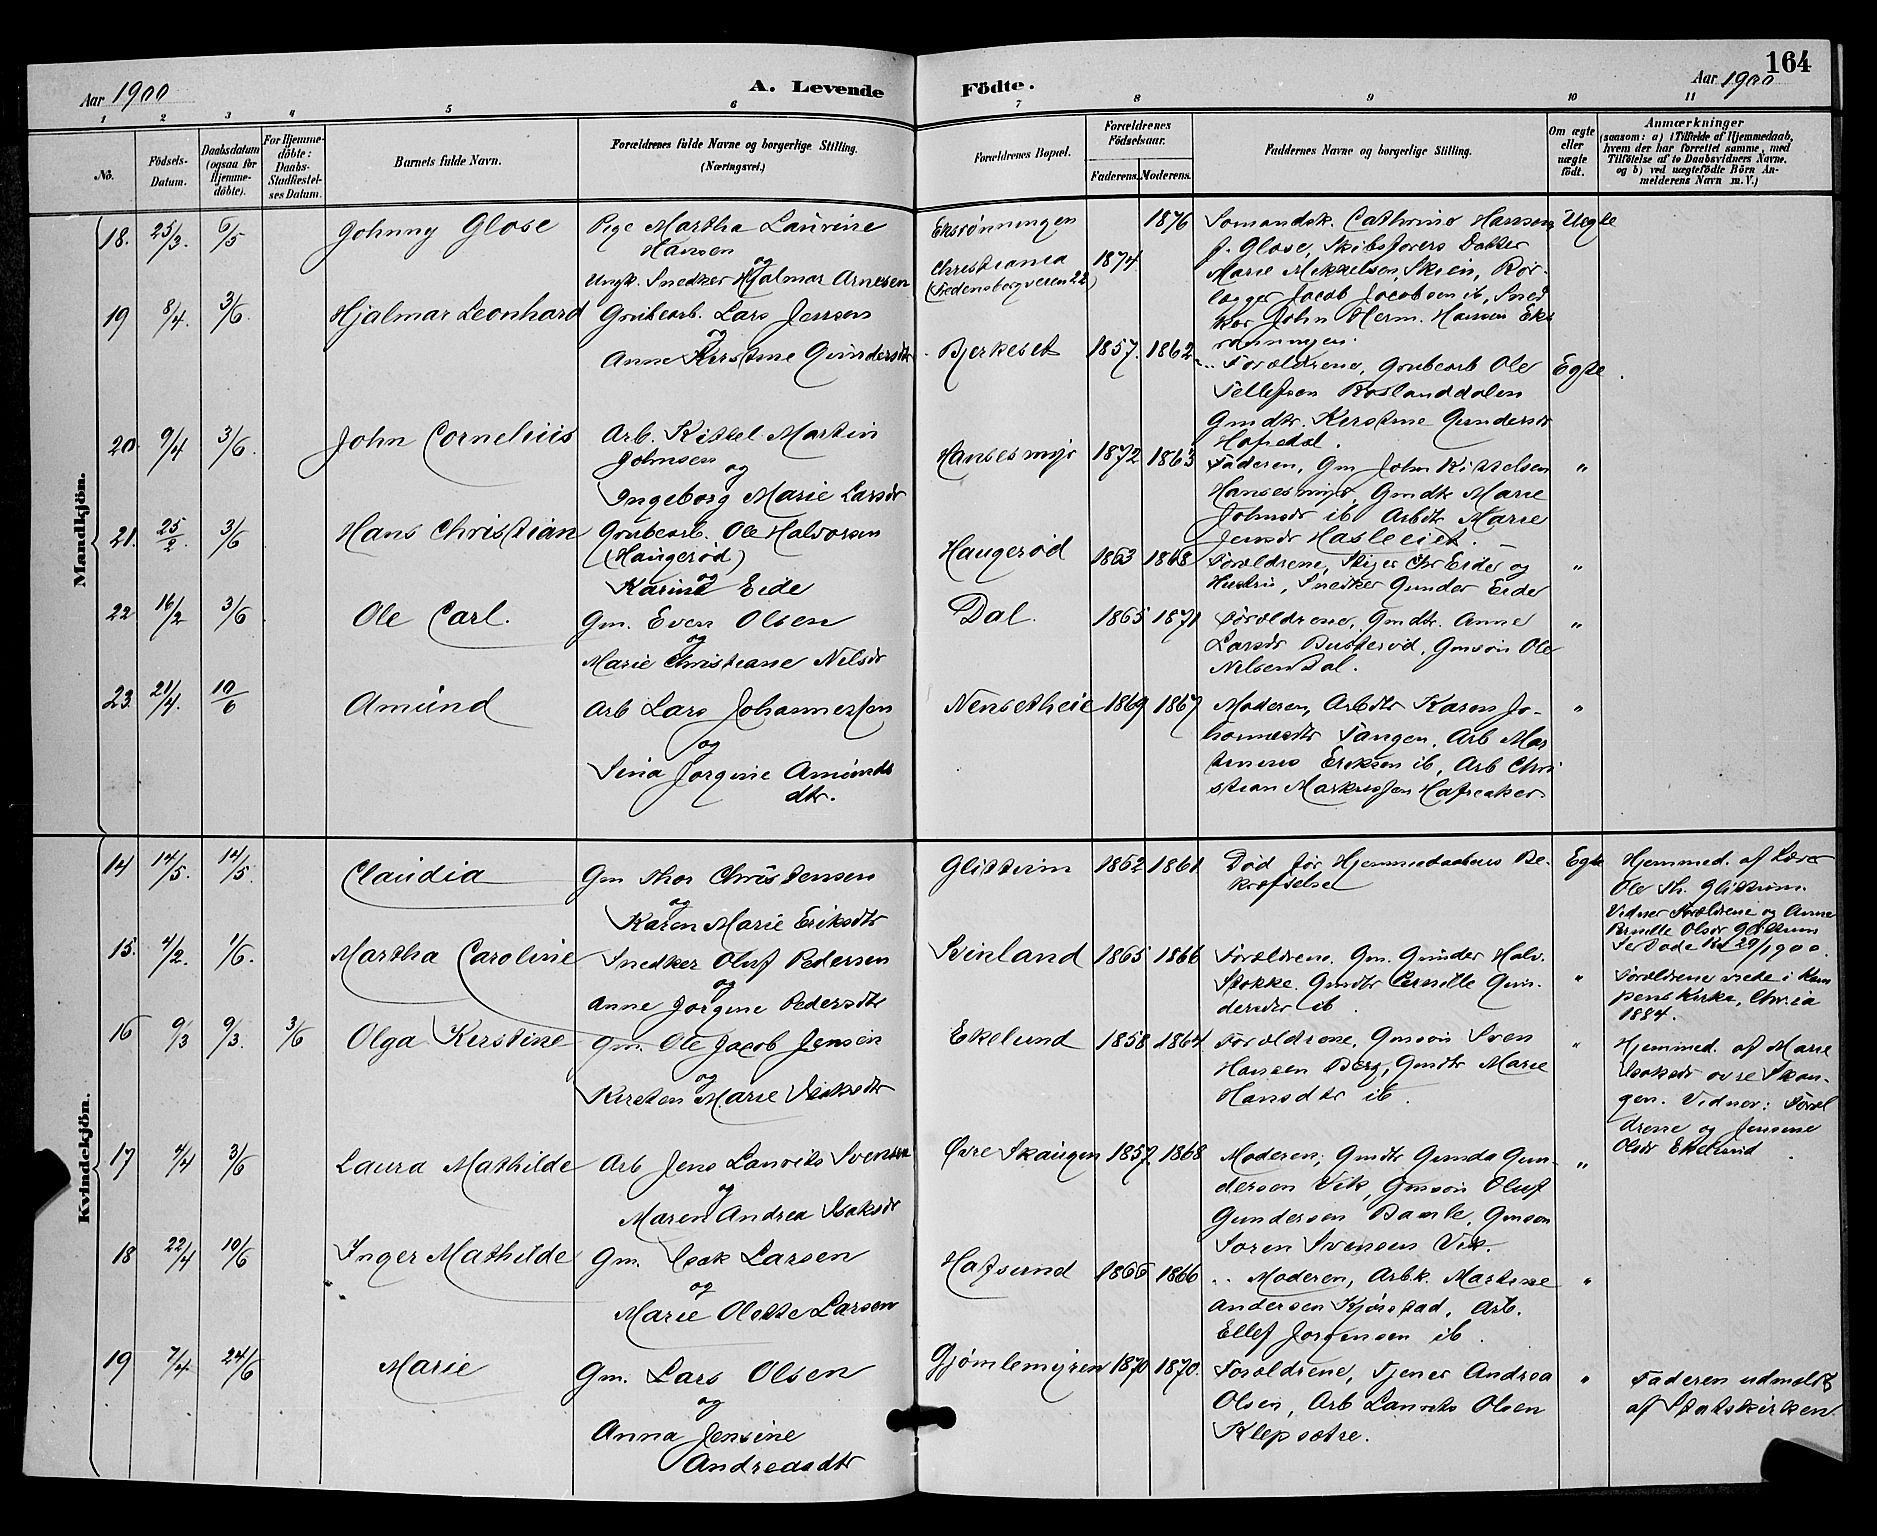 164
Aar 1900
A. Levende
Födte.
Aar 1900
1 2 3 4 5 6 7 8 9 10 11
No.
Födsels-
Datum.
Daabsdatum
(ogsaa for
Hjemme-
döbte).
For Hjemme-
döbte:
Daabs-
Stadfæstel-
ses Datum.
Barnets fulde Navn.
Forældrenes fulde Navne og borgerlige Stilling.
(Næringsvei.)
Forældrenes Bopæl.
Forældrenes
Födselsaar.
Faderens. Moderens.
Faddernes Navne og borgerlige Stilling.
Om ægte
eller
uægte
födt.
Anmærkninger
(saasom: a) i Tilfælde af Hjemmedaab,
hvem der har forrettet samme, med
Tilföielse af to Daabsvidners Navne,
og b) ved uægtefödte Börn An-
melderens Navn m. V.)
Mandkjön.
18. 25/3. 6/5
Johnny Glose
Pige Martha Laurine
Hansen
og
Ungk. Snedker Hjalmar Arnesen
Eksrønningen
Christiania
(Fredensborgveien 22)
1874
1876
Sømandsk. Cathrine Hansen
f. Glose, Skibsførers Datter
Marie Mikkelsen, Skien, Rør-
lægger Jacob Jacobsen ib, Sned
ker John Herm. Hansen Eks
rønningen.
Uegte
19 8/4. 3/6.
Hjalmar Leonhard
Grubearb. Lars Jensen
og
Anne Kirstine Gundersdtr.
Bjerkeset
1857. 1862
Forældrene, Grubearb Ole
Tellefsen Roslanddalen
Gmdtr. Kerstine Gundersdr
Hafredal.
Egte
20 9/4 3/6.
John Cornelius
Arb. Kittel Martin
Johnsen
og
Ingeborg Marie Larsdr
Hansesmyr
1872 1863
Faderen, Gm John Kittelsen
Hansesmyr, Gmdtr Marie
Johnsdr ib Arbdtr Marie
Jensdr Hasleeiet.
"
21. 25/2. 3/6
Hans Christian
Grubearb. Ole Halvorsen
(Haugerød)
og
Karine Eide
Haugerød
1863 1868
Forældrene, Skiper Chr Eider og
Hustru, Snedker Gunder Eider
"
22 16/2 3/6
Ole Carl.
Gm. Even Olsen
og
Marie Christiane Nilsdr
Dal.
1865 1871
Forældrene, Gmdtr. Anne
Larsdr Busterød, Gmsøn Ole
Nilsen Dal.
"
23. 21/4. 10/6
Amund
Arb Lars Johannessen
og
Sina Jørgine Amunds
dtr.
Nensetheie
1869 1867
Moderen, Arbdtr Karen Jo-
hannesdtr Tangen, Arb Mar
tinius Eriksen ib, Arb Chri
stian Markussen Hafreaker
"
Kvindekjön.
14 14/5. 14/5.
Claudia
Gm Thor Christensen
og
Karen Marie Eriksdtr
Glittum
1862 1861
Død før Hjemmedaabens Be-
kræftelse
Egte
Hjemmed. af Lærer
Ole Th. Glittum.
Vidner Forældrene og Anne
Pernille Olsdr Glittum
Se Døde No 29/1900.
15. 4/2. 1/6.
Martha Caroline
Snedker Oluf Pedersen
og
Anne Jørgine Pedersdtr
Svinland
1865 1866
Forældrene. Gm. Gunder Halv.
Stokke. Gmdtr Pernille Gun-
dersdtr ib.
"
Forældrene viede i Kam
pens Kirke, Chr.ia
1884.
16 9/3 9/3. 3/6
Olga Kerstine
Gm. Ole Jacob Jensen
og
Kirsten Marie Isaksdtr
Ekelund
1858 1864
Forældrene, Gmsøn Sven
Hansen Berg, Gmdtr Marie
Hansdtr ib.
"
Hjemmed. af Marie
Isaksdr øvre Skau-
gen. Vidner: Foræl
drene og Jensene
Olsdr Ekelund
17 4/4 3/6
Laura Mathilde
Arb Jens Laurits Svensen
og
Maren Andrea Isaksdr
Øvre Skaugen
1857 1868
Moderen, Gmdtr Gunda Gun-
dersen Vik, Gmsøn Oluf
Gundersen Bamle, Gmsøn
Søren Svensen Vik.
"
18 22/4 10/6
Inger Mathilde
Gm. Isak Larsen
og
Marie Olette Larsen
Hafsund
1866 1866
Moderen, Arb.k. Martine
Andersen Kjørstad, Arb.
Ellef Jørgensen ib.
"
19 7/4 24/6
Marie
Gm. Lars Olsen
og
Anna Jensine
Andreasdtr
Gjømlemyren
1870 1870.
Forældrene, Tjener Andrea
Olsen, Arb Laurits Olsen
Klepsætre.
"
Faderen udmeldt
af Statskirken